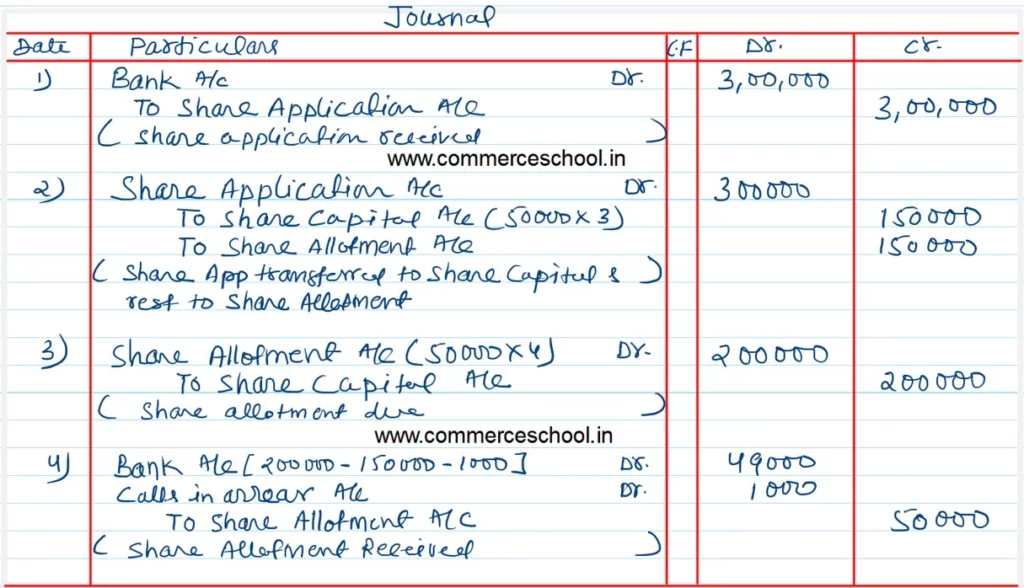 Journal
Date Particulars C.F Dr. Cr.
1) Bank A/c Dr. 3,00,000
To Share Application A/c 3,00,000
( Share application received )
www.commerceschool.in
2) Share Application A/c Dr. 300000
To Share Capital A/c (50000 x 3) 150000
To Share Allotment A/c 150000
( Share App transferred to Share Capital & )
rest to Share Allotment
3) Share Allotment A/c (50000 x 4) Dr. 200000
To Share Capital A/c 200000
( Share allotment due )
www.commerceschool.in
4) Bank A/c [200000 - 150000 - 1000] Dr. 49000
Calls in arrear A/c Dr. 1000
To Share Allotment A/c 50000
( Share Allotment Received )